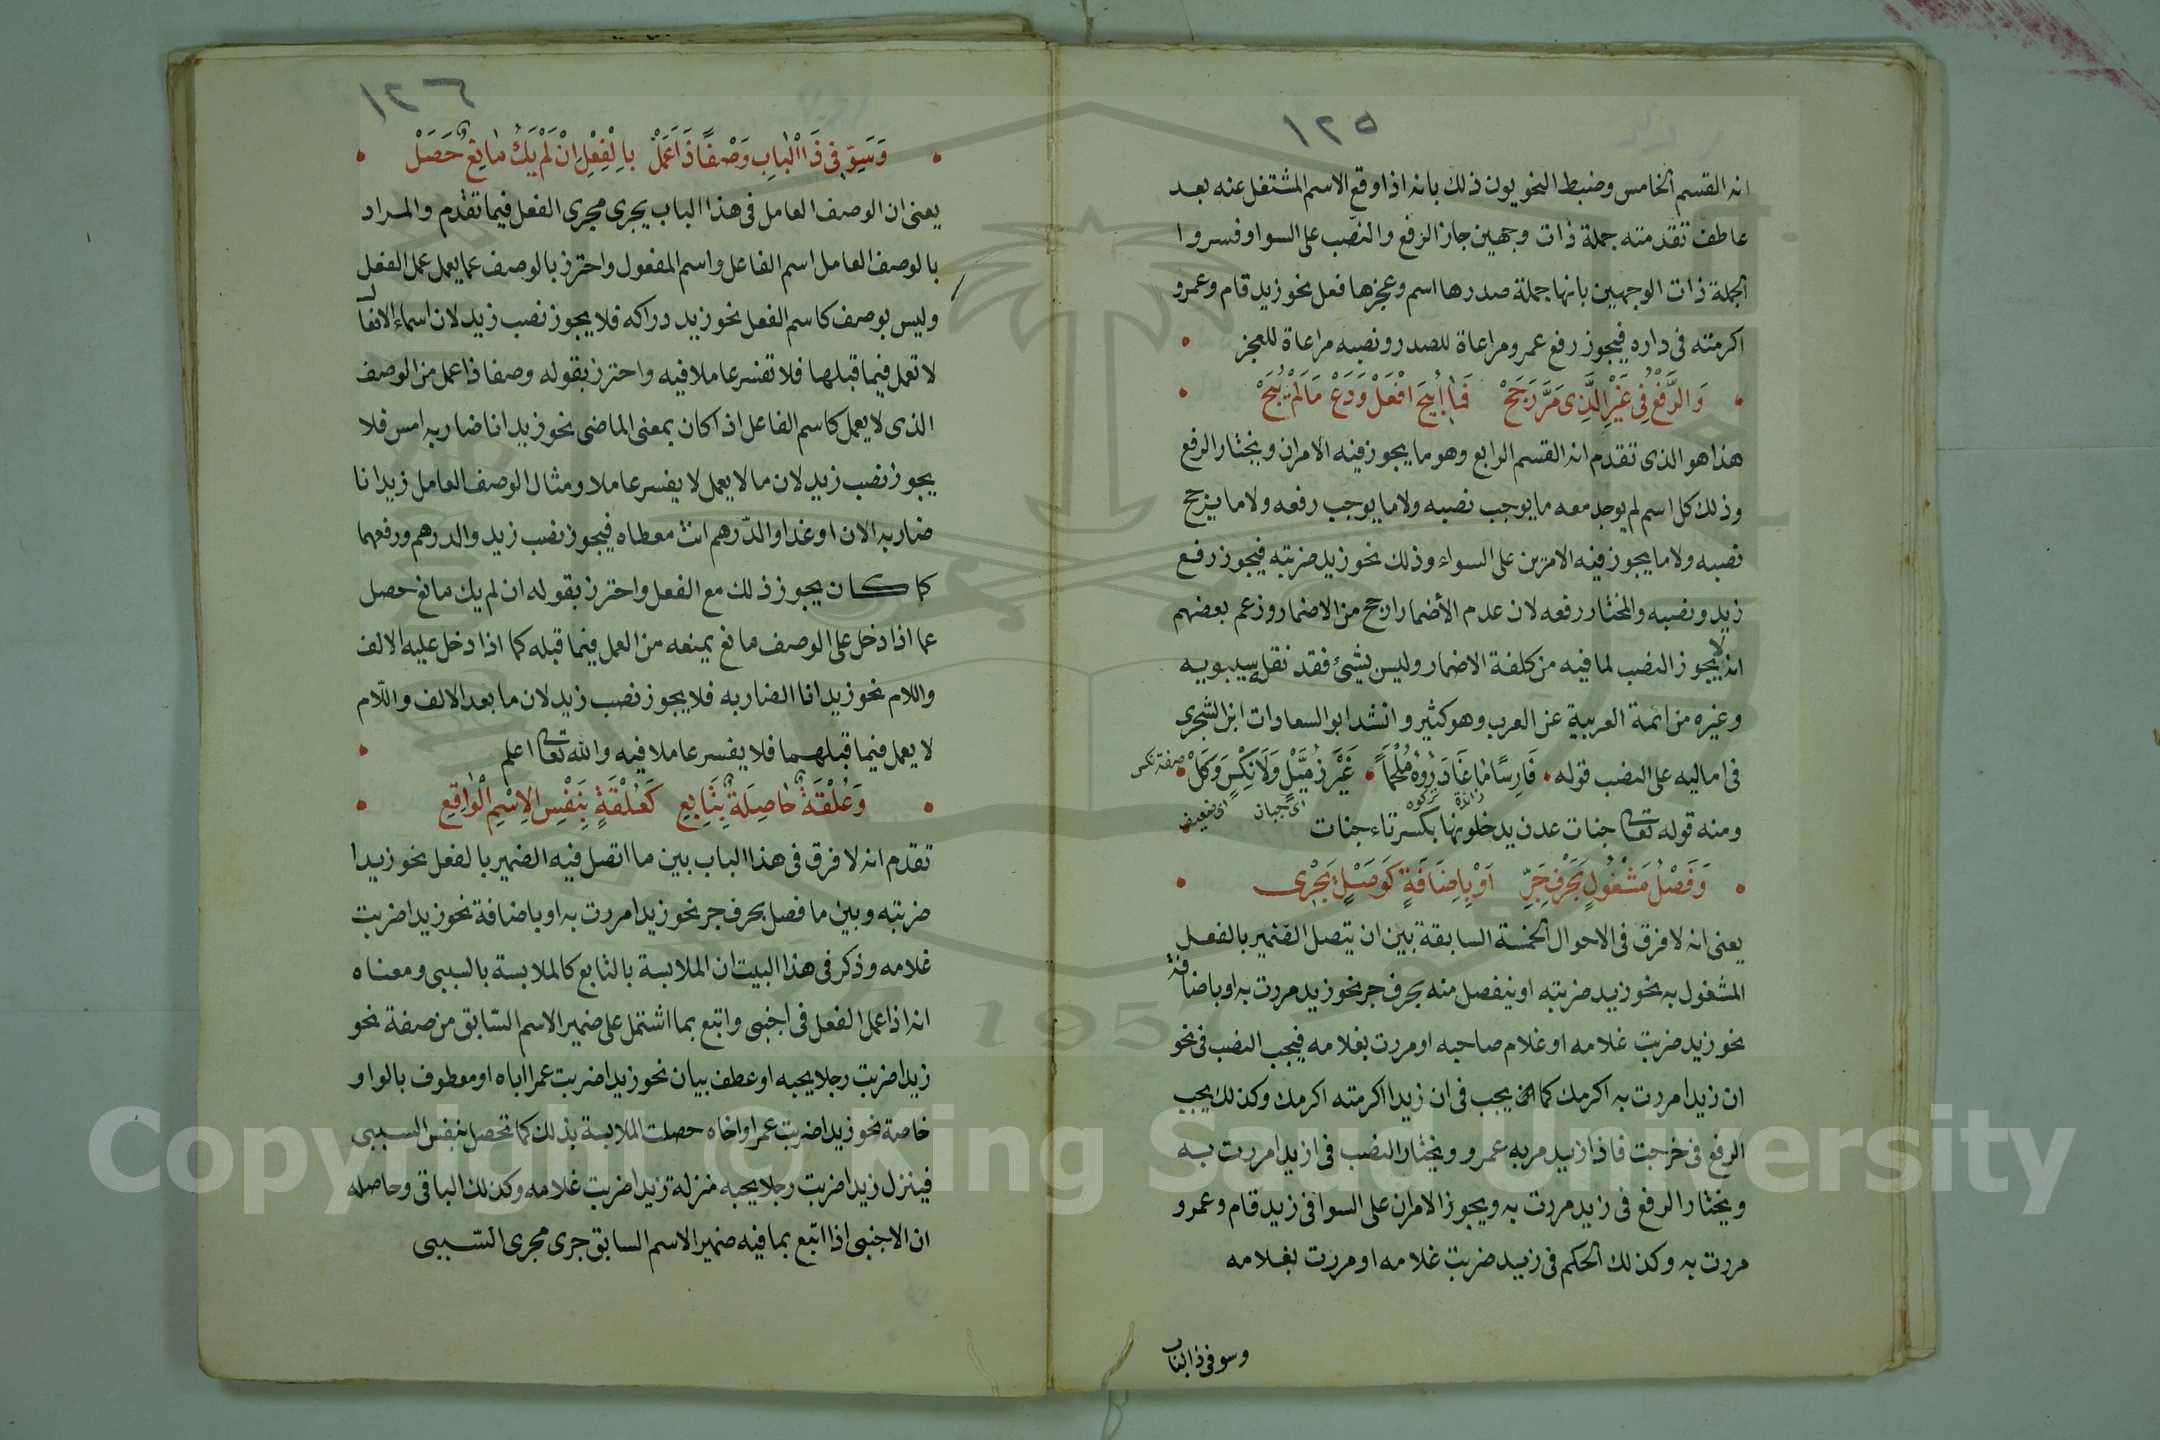 ١٢٥
انه القسم الخامس وضبط النحويون ذلك بانه اذا وقع الاسم المشتغل عنه بعد
عاطف تقدمته جملة ذات وجهين جاز الرفع والنصب على السوا وفسروا
الجملة ذات الوجهين بانها جملة صدرها اسم وعجزها فعل نحو زيد قام وعمرو
اكرمته فى داره فيجوز رفع عمرو مراعاة للصدر ونصبه مراعاة للعجز
وَالرَّفْعُ فِى غَيْرِ الَّذِى مَرَّ رَجَحْ فَمَا اُبِيحَ افْعَلْ وَدَعْ مَا لَمْ يُبَحْ
هذا هو الذى تقدم انه القسم الرابع وهو ما يجوز فيه الامران ويختار الرفع
وذلك كل اسم لم يوجد معه ما يوجب نصبه ولا ما يوجب رفعه ولا ما يرجح
نصبه ولا ما يجوز فيه الامرين على السواء وذلك نحو زيد ضربته فيجوز رفع
زيد ونصبه والمختار رفعه لان عدم الأضمار ارجح من الاضمار وزعم بعضهم
انه لا يجوز النصب لما فيه من كلفة الاضمار وليس بشئ فقد نقله سيبويه
وغيره من ائمة العربية عن العرب وهو كثير وانشد ابو السعادات ابن الشجرى
فى اماليه على النصب قوله فَارِسًا مَا غَادَرُوْهُ مُلْحَمًا غَيْرَ زُمَّيْلٍ وَلَا نِكْسٍ وَكَلْ
زائدة تركوه اى جبان اى ضعيف
ومنه قوله تعالى جنات عدن يدخلونها بكسر تاء جنات
وَفَصْلُ مَشْغُولٍ بِحَرْفِ جَرِّ اَوْ بِاِضَافَةٍ كَوَصْلٍ يَجْرِى
يعنى انه لا فرق فى الاحوال الخمسة السابقة بين ان يتصل الضمير بالفعل
المشغول به نحو زيد ضربته او ينفصل منه بحرف جر نحو زيد مررت به او باضافة
نحو زيد ضربت غلامه او غلام صاحبه او مررت بغلامه فيجب النصب فى نحو
ان زيدا مررت به اكرمك كما يجب فى ان زيدا اكرمته اكرمك وكذلك يجب
الرفع فى خرجت فاذا زيد مر به عمرو ويختار النصب فى ازيدا مررت به
ويختار الرفع فى زيد مررت به ويجوز الامران على السوا فى زيد قام وعمرو
مررت به وكذلك الحكم فى زيد ضربت غلامه او مررت بغلامه
وسو فى ذا الباب
١٢٦
وَسَوِّ فِى ذَا الْبَابِ وَصْفًا ذَا عَمَلْ بِالْفِعْلِ اِنْ لَمْ يَكُ مَانِعٌ حَصَلْ
يعنى ان الوصف العامل فى هذا الباب يجرى مجرى الفعل فيما تقدم والمراد
بالوصف العامل اسم الفاعل واسم المفعول واحترز بالوصف عما يعمل عمل الفعل
وليس بوصف كاسم الفعل نحو زيد دراكه فلا يجوز نصب زيد لان اسماء الافعال
لا تعمل فيما قبلها فلا تفسر عاملا فيه واحترز بقوله وصفا ذا عمل من الوصف
الذى لا يعمل كاسم الفاعل اذا كان بمعنى الماضى نحو زيد انا ضاربه امس فلا
يجوز نصب زيد لان ما لا يعمل لا يفسر عاملا ومثال الوصف العامل زيد انا
ضاربه الان او غدا والدّرهم انت معطاه فيجوز نصب زيد والدرهم ورفعهما
كما كان يجوز ذلك مع الفعل واحترز بقوله ان لم يك مانع حصل
عما اذا دخل على الوصف مانع يمنعه من العمل فيما قبله كما اذا دخل عليه الالف
واللام نحو زيد انا الضاربه فلا يجوز نصب زيد لان ما بعد الالف واللّام
لا يعمل فيما قبلهما فلا يفسر عاملا فيه والله تعالى اعلم
وَعُلْقَةٌ حَاصِلَةٌ بِتَابِعِ كَعُلْقَةٍ بِنَفْسِ الاِسْمِ الْوَاقِعِ
تقدم انه لا فرق فى هذا الباب بين ما اتصل فيه الضمير بالفعل نحو زيدا
ضربته وبين ما فصل بحرف جر نحو زيدا مررت به او باضافة نحو زيدا ضربت
غلامه وذكر فى هذا البيت ان الملابسة بالتابع كالملابسة بالسببى ومعناه
انه اذا عمل الفعل فى اجنبى واتبع بما اشتمل على ضمير الاسم السّابق من صفة نحو
زيدا ضربت رجلا يحبه او عطف بيان نحو زيدا ضربت عمرا اباه او معطوف بالواو
خاصة نحو زيدا ضربت عمرا واخاه حصلت الملابسة بذلك كما تحصل بنفس السببى
فينزل زيدا ضربت رجلا يحبه منزلة زيدا ضربت غلامه وكذلك الباقى وحاصله
ان الاجنبى اذا اتبع بما فيه ضمير الاسم السابق جرى مجرى السّببى
1957
Copyright © King Saud University